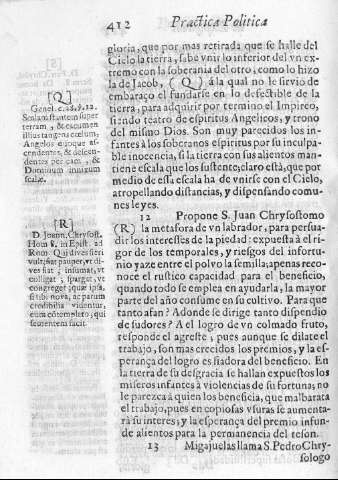 412 Practica Politica
gloria, que por mas retirada que se halle del
Cielo la tierra, sabe vnir lo inferior del vn ex-
tremo con la soberania del otro, como lo hizo
la de Jacob, (Q) á la qual no le sirvio de
embaraço el fundarse en lo defectible de la
tierra, para adquirir por termino el Impireo,
siendo teatro de espiritus Angelicos, y trono
del mismo Dios. Son muy parecidos los in-
fantes à los soberanos espiritus por su inculpa-
ble inocencia, si la tierra con sus alientos man-
tiene escala que los sustente; claro està, que por
medio de esta escala ha de vnirse con el Cielo,
atropellando distancias, y dispensando comu-
nes leyes.
12 Propone S. Juan Chrysostomo
(R) la metafora de vn labrador, para persua-
dir los interesses de la piedad: expuesta à el ri-
gor de los temporales, y riesgos del infortu-
nio yaze entre el polvo la semilla; apenas reco-
noce el rustico capacidad para el beneficio,
quando todo se emplea en ayudarla, la mayor
parte del año consume en su cultivo. Para que
tanto afan? Adonde se dirige tanto dispendio
de sudores? A el logro de vn colmado fruto,
responde el agreste, pues aunque se dilate el
trabajo, son mas crecidos los premios, y la es-
perança del logro es fiadora del beneficio. En
la tierra de su desgracia se hallan expuestos los
miseros infantes à violencias de su fortuna; no
le parezca à quien los beneficia, que malbarata
el trabajo, pues en copiosas vsuras se aumenta-
rà su interes; y la esperança del premio infun-
de alientos para la permanencia del teson.
13 Migajuelas llama S. Pedro Chry-
sologo
[Q]
Genes. c. 28. 
Scalam stantem super
terram, & cacumen
illius tangens cœlum,
Angelos quoque as-
cendentes, & descen-
dentes per eam, &
Dominum innixum
scalæ.
[R]
D. Joann. Chrysost.
Hom in Epist. ad
Rom. Qui dives fieri
vult, sit pauper, vt di-
ves fiat; insumat, vt
colligat, spargat, ve
congreget; quæ ipsa,
si tibi nova, ac parum
credibilia videntur,
eum contemplato, qui
sementem facit.